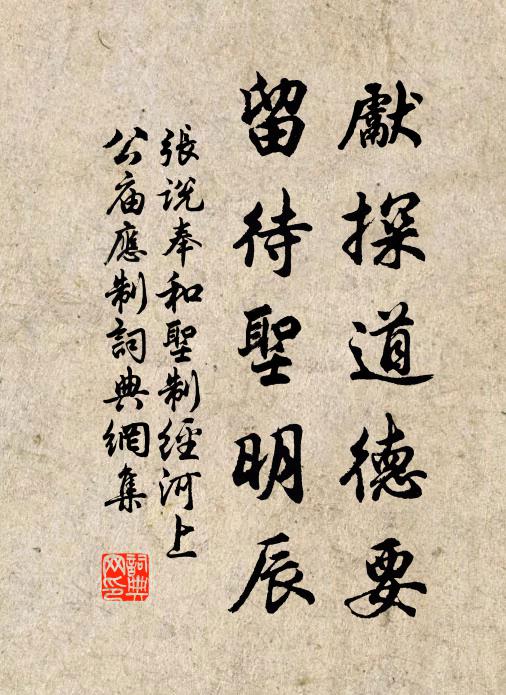 獻探道德要
留待聖明辰
張說奉和聖制經河上
公庙應制詞典網集
詞典网印